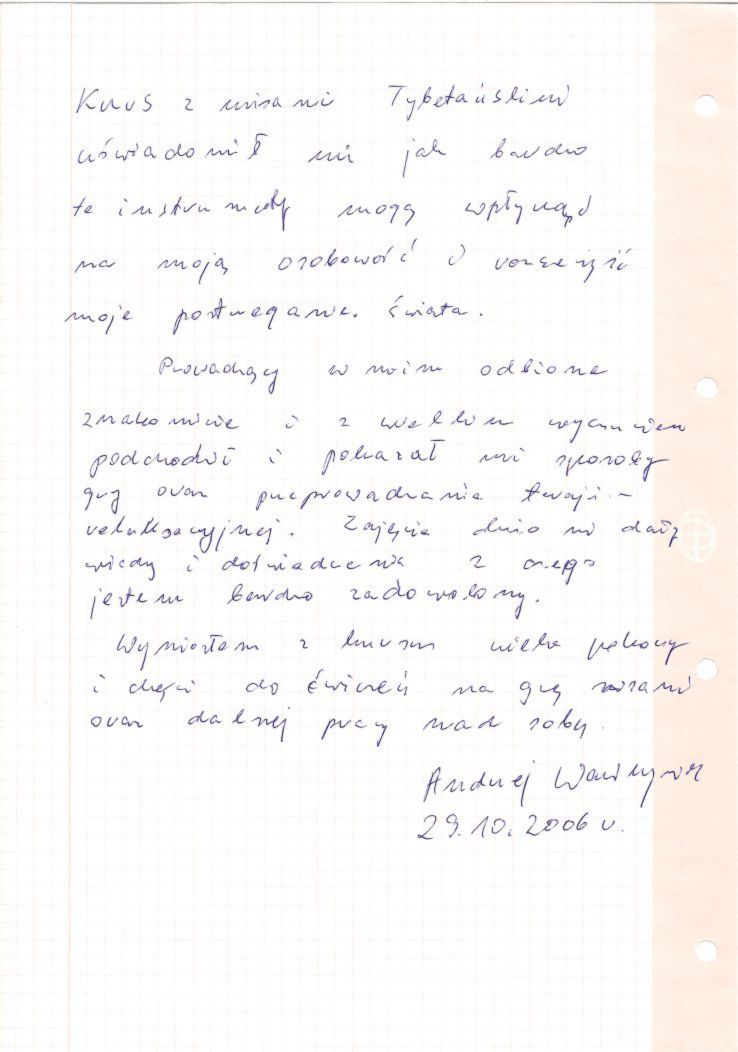 Kurs z misami Tybetańskimi
uświadomił mi jak bardzo
te instrumenty mogą wpłynąć
na moją osobowość i rozszerzyć
moje postrzeganie świata.
Prowadzący w moim odbiorze
znakomicie i z wielkim wyczuciem
podchodził i pokazał mi sposoby
gry oraz przeprowadzania
relaksacyjnej. Zajęcia dużo mi dały
wiedzy i doświadczenia z czego
jestem bardzo zadowolony.
Wyniosłem z kursu wiele pokory
i chęci do ćwiczeń na grę misami
oraz dalszej pracy nad sobą.
Andrzej
29.10.2006 r.